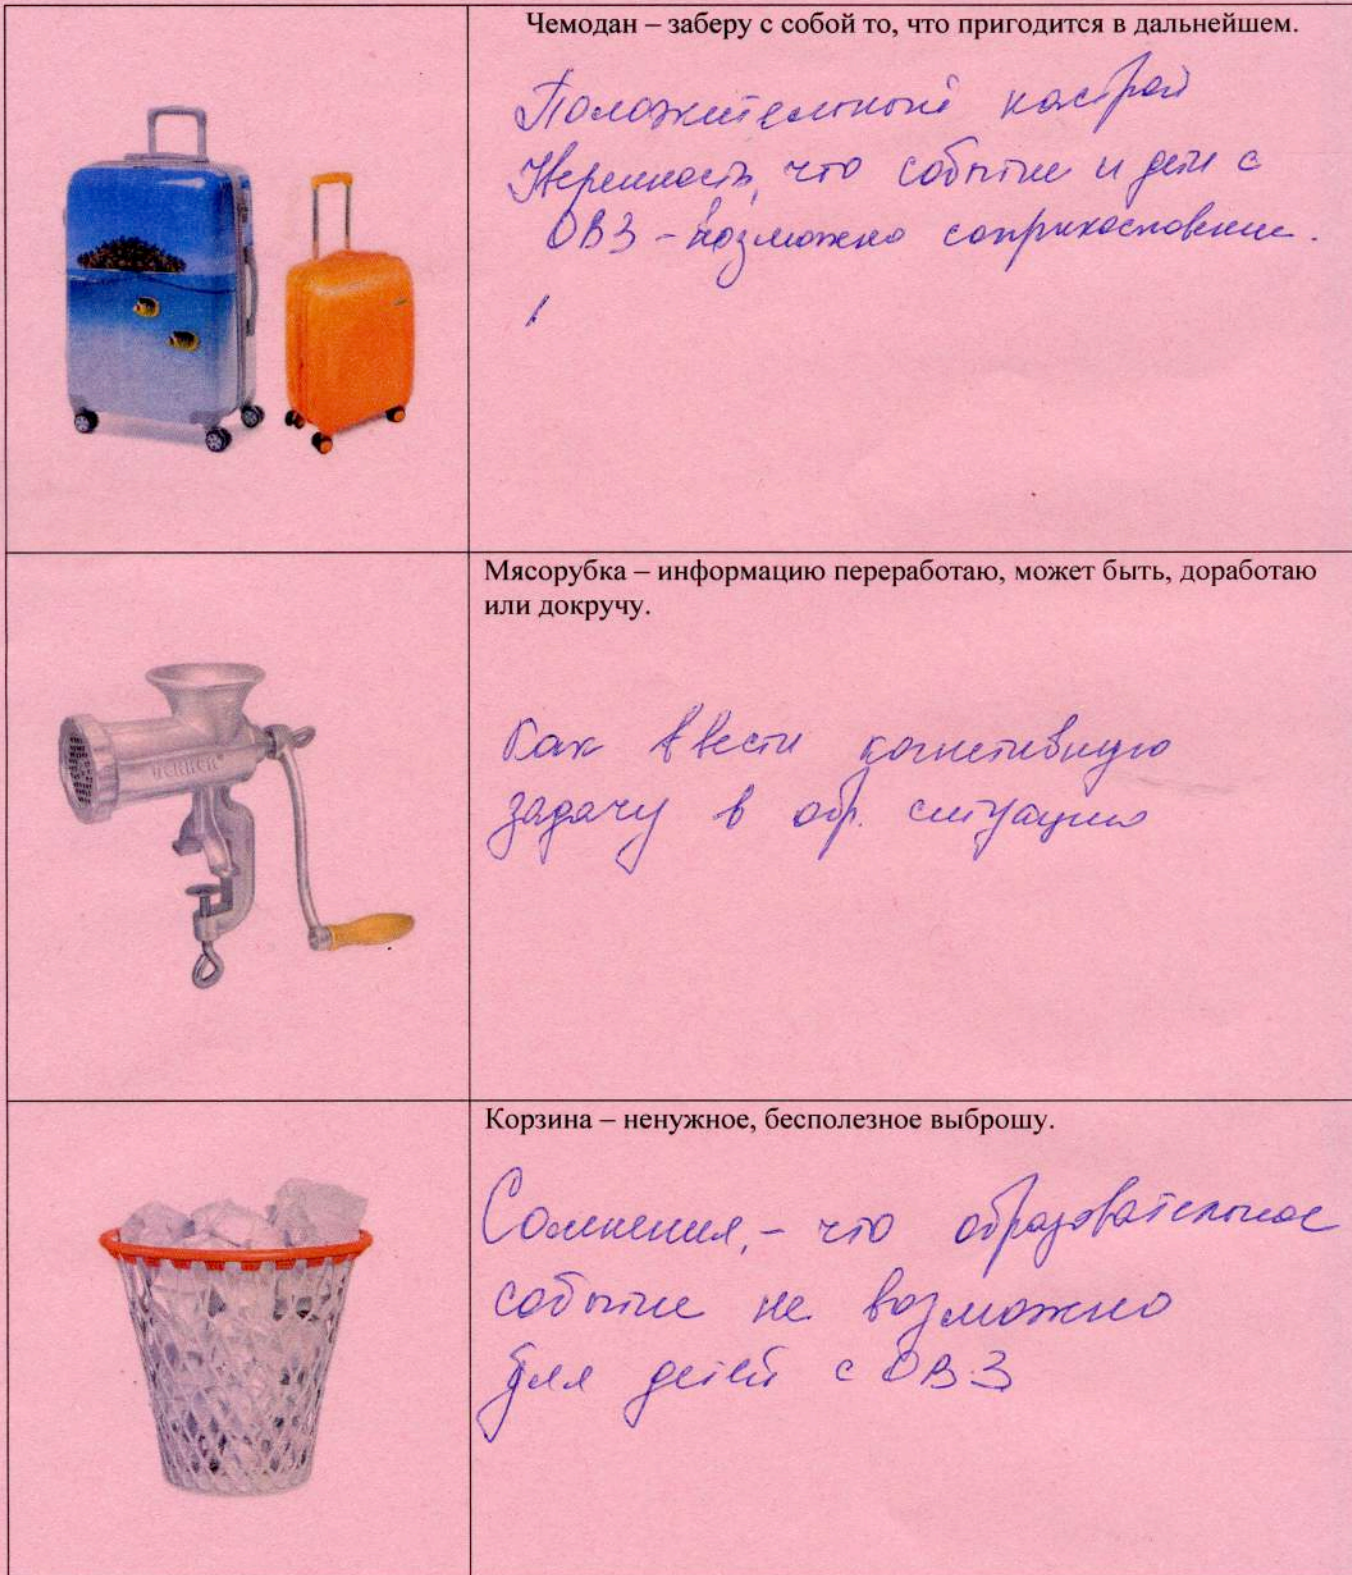 Чемодан – заберу с собой то, что пригодится в дальнейшем.
Положительный настрой
Уверенность, что событие и дети с
ОВЗ - возможно соприкосновение.
Мясорубка – информацию переработаю, может быть, доработаю
или докручу.
Как ввести когнетивную
задачу в обр. ситуацию
Корзина – ненужное, бесполезное выброшу.
Сомнения, - что образовательное
событие не возможно
для детей с ОВЗ